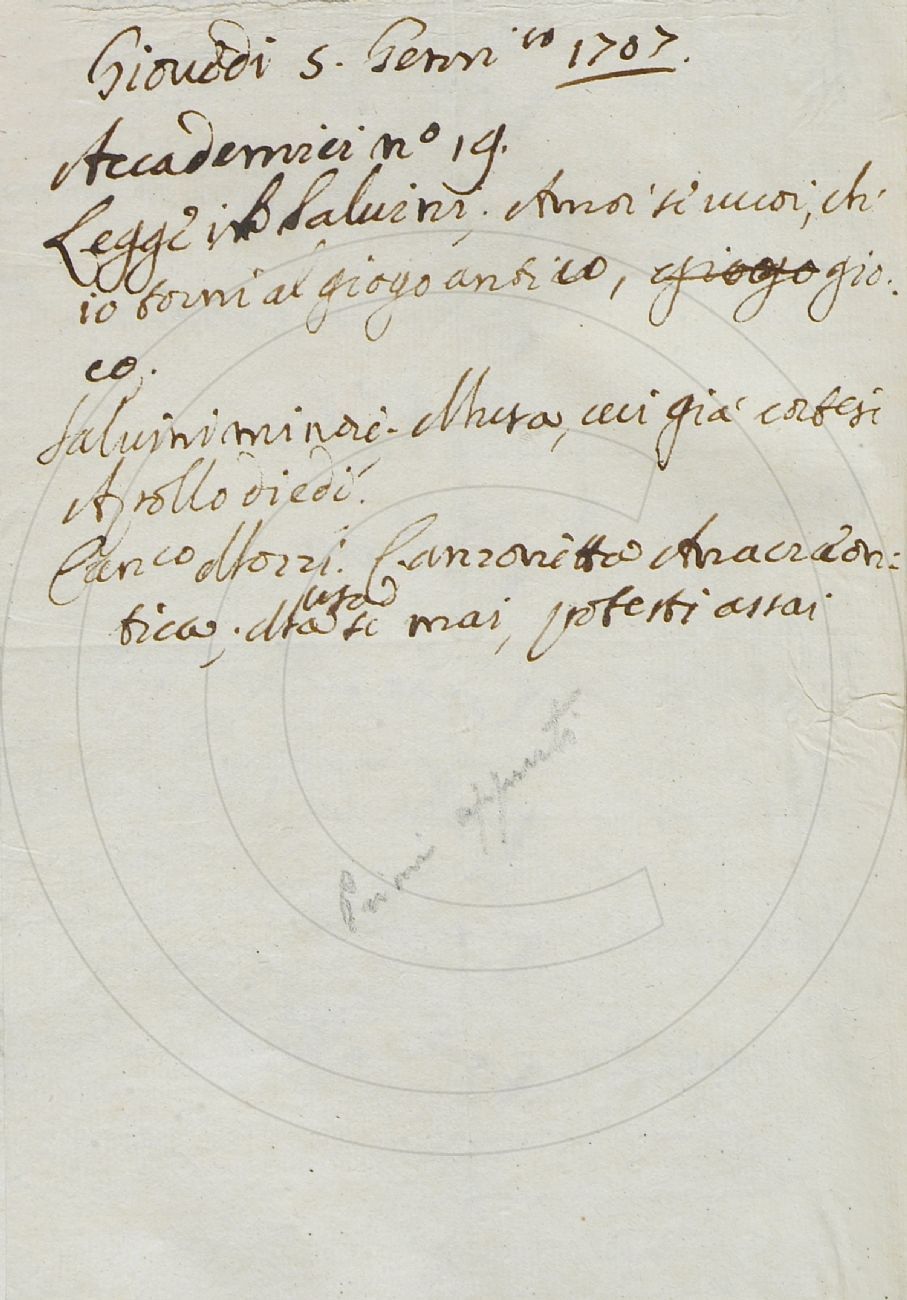 Giovedi 5. Genn.co 1707.
Accademici n.o 19.
Legge il Salvini. Amor se vuoi, ch'
io torni al giogo antico, giogo gio:
co.
Salvini minore. Musa, cui già cortese
Apollo diede.
Canco Mozzi. Canzonetta Anacreon:
tica. Ma se mai, potesti assai
Primi appunti